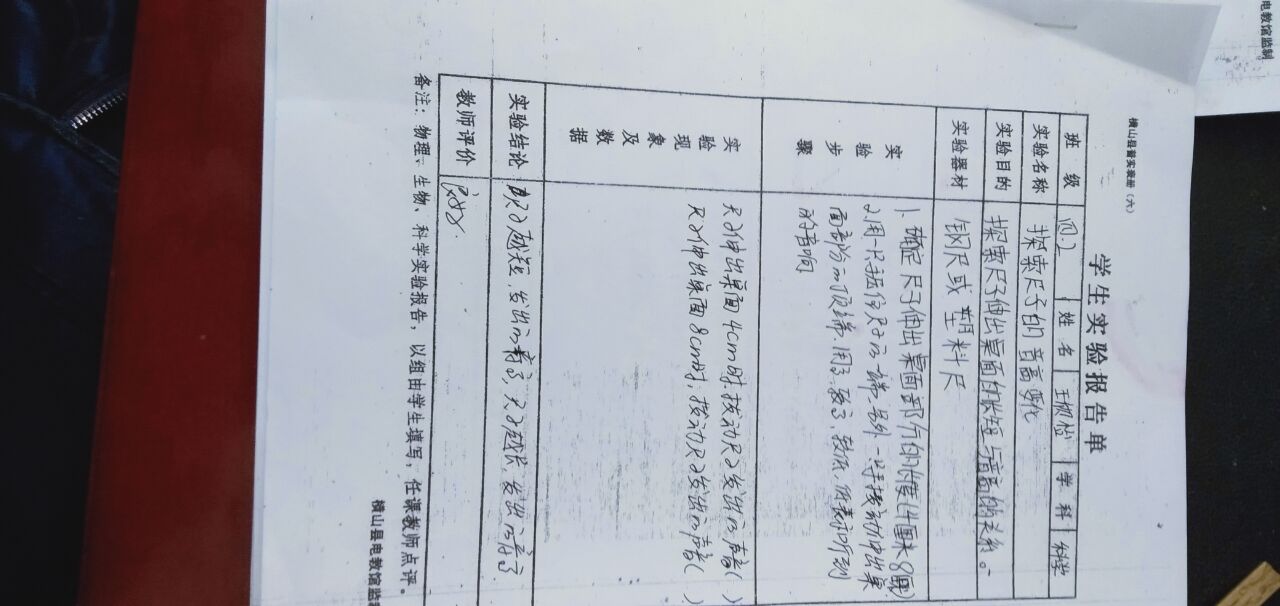 电教馆监制
横山县普实表册（六）
学生实验报告单
班级 四.2 姓名 王 学科 科学
实验名称 探索尺子的音高变化
实验目的 探索尺子伸出桌面的长短与音高的关系。
实验器材 钢尺或塑料尺
实验步骤
1、确定尺子伸出桌面部分的长度(4厘米 8厘)
2用一只手压住尺子的一端，另外一只手拨动伸出桌
面部分的顶端.用高、较高、较低、低表示听到
的音响
实验现象及数据
尺子伸出桌面4cm时.拨动尺子发出的声音( )
尺子伸出桌面8cm时，拨动尺子发出的声音( )
实验结论 尺子越短，发出的音高，尺子越长，发出的音
教师评价
备注：物理、生物、科学实验报告，以组由学生填写，任课教师点评。
横山县电教馆监制